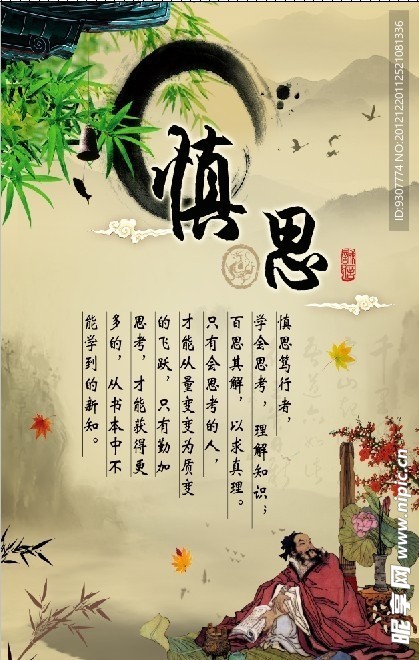 慎思
慎思笃行者，
学会思考，理解知识；
百思其解，以求真理。
只有会思考的人，
才能从量变变为质变
的飞跃，只有勤加
思考，才能获得更
多的，从书本中不
能学到的新知。
ID:9307774 NO:20121220112521081336
昵享网 www.nipic.cn